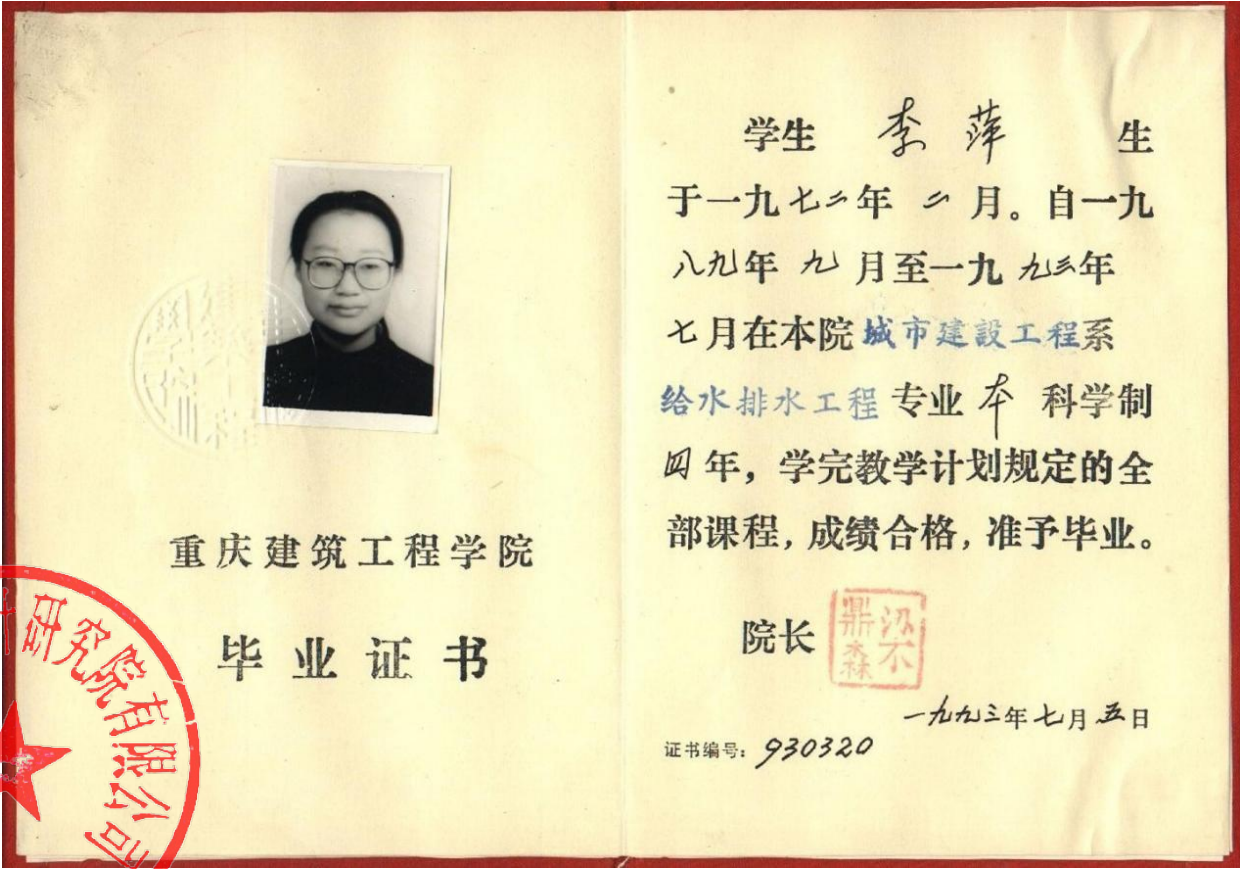 重庆建筑工程学院
毕业证书
研究院有限公司
学生 李萍 生
于一九七二年 二 月。自一九
八九年 九 月至一九九三年
七月在本院城市建設工程系
给水排水工程专业 本 科学制
四年，学完教学计划规定的全
部课程，成绩合格，准予毕业。
院长
一九九三年七月五日
证书编号：930320